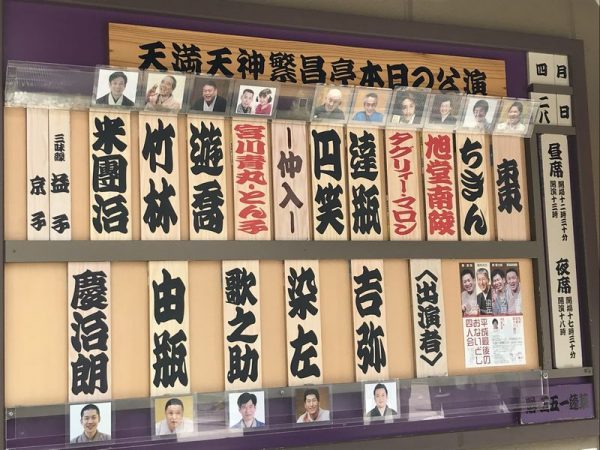 天満天神繁昌亭本日の公演
四月
二八日
昼席
開場十二時三十分
開演十三時
夜席
開場十七時三十分
開演十八時
東束
ちきん
旭堂南陵
タグリィ・マロン
達瓶
円笑
仲入
宮川青丸・とん子
遊喬
竹林
米團治
三味線
益子
京子
〈出演者〉
吉弥
染左
歌之助
由瓶
慶治朗
平成最後の
おないどし
四人会